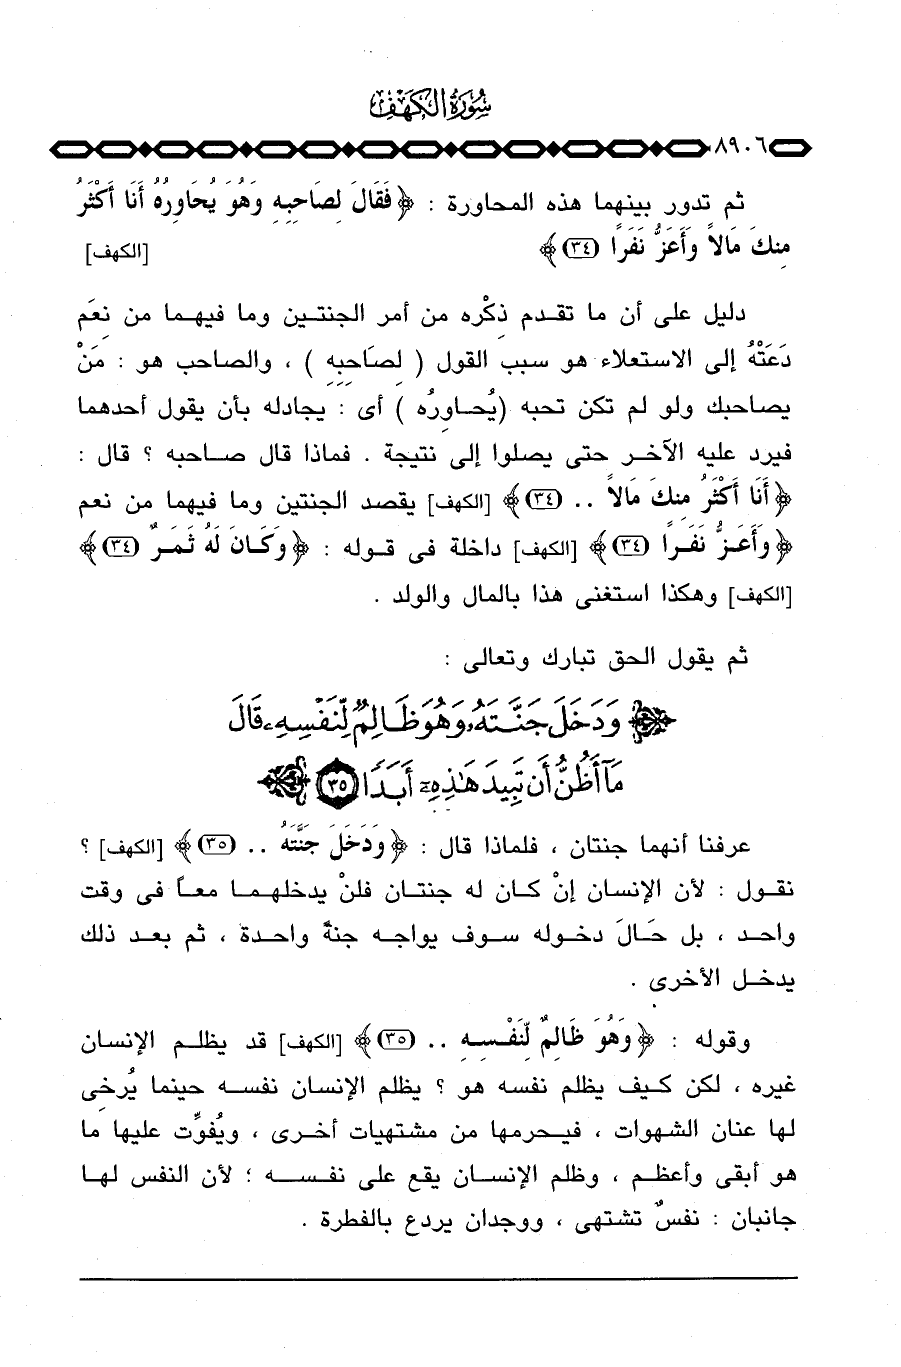 سورة الكهف
٨٩٠٦
ثم تدور بينهما هذه المحاورة : ﴿ فَقَالَ لِصَاحِبِهِ وَهُوَ يُحَاوِرُهُ أَنَا أَكْثَرُ
مِنكَ مَالاً وَأَعَزُّ نَفَرًا (٣٤) ﴾ [الكهف]
دليل على أن ما تقدم ذكْره من أمر الجنتين وما فيهما من نعَم
دَعَتْهُ إلى الاستعلاء هو سبب القول ( لِصَاحِبِهِ ) ، والصاحب هو : مَنْ
يصاحبك ولو لم تكن تحبه (يُحَاوِرُه ) أى : يجادله بأن يقول أحدهما
فيرد عليه الآخر حتى يصلوا إلى نتيجة . فماذا قال صاحبه ؟ قال :
﴿ أَنَا أَكْثَرُ مِنكَ مَالاً .. (٣٤) ﴾ [الكهف] يقصد الجنتين وما فيهما من نعم
﴿ وَأَعَزُّ نَفَرًا (٣٤) ﴾ [الكهف] داخلة فى قوله : ﴿ وَكَانَ لَهُ ثَمَرٌ (٣٤) ﴾
[الكهف] وهكذا استغنى هذا بالمال والولد .
ثم يقول الحق تبارك وتعالى :
﴿ وَدَخَلَ جَنَّتَهُۥ وَهُوَ ظَالِمٌ لِّنَفْسِهِۦ قَالَ
مَآ أَظُنُّ أَن تَبِيدَ هَٰذِهِۦٓ أَبَدًا ٣٥ ﴾
عرفنا أنهما جنتان ، فلماذا قال : ﴿ وَدَخَلَ جَنَّتَهُ .. (٣٥) ﴾ [الكهف] ؟
نقول : لأن الإنسان إنْ كان له جنتان فلنْ يدخلهما معاً فى وقت
واحد ، بل حَالَ دخوله سوف يواجه جنةً واحدة ، ثم بعد ذلك
يدخل الأخرى .
وقوله : ﴿ وَهُوَ ظَالِمٌ لِّنَفْسِهِ .. (٣٥) ﴾ [الكهف] قد يظلم الإنسان
غيره ، لكن كيف يظلم نفسه هو ؟ يظلم الإنسان نفسه حينما يُرخى
لها عنان الشهوات ، فيحرمها من مشتهيات أخرى ، ويُفوِّت عليها ما
هو أبقى وأعظم ، وظلم الإنسان يقع على نفسه ؛ لأن النفس لها
جانبان : نفسٌ تشتهى ، ووجدان يردع بالفطرة .